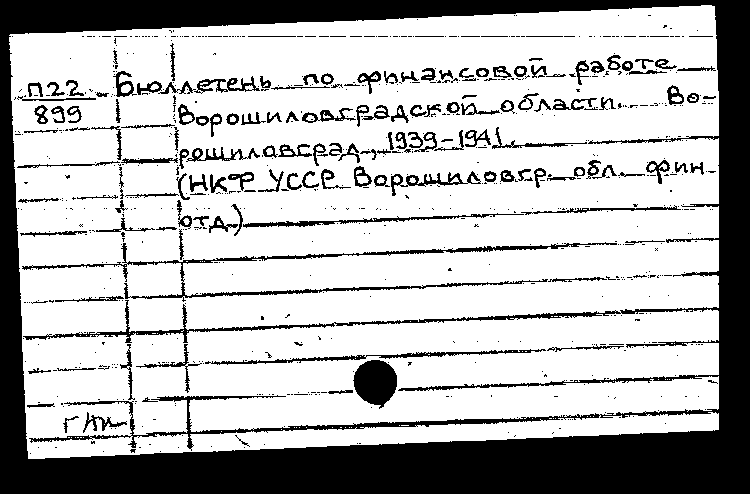 П22 Бюллетень по финансовой работе
899 Ворошиловградской области. Во-
рошиловград, 1939-1941.
(НКФ УССР Ворошиловгр. обл. фин.
отд.)